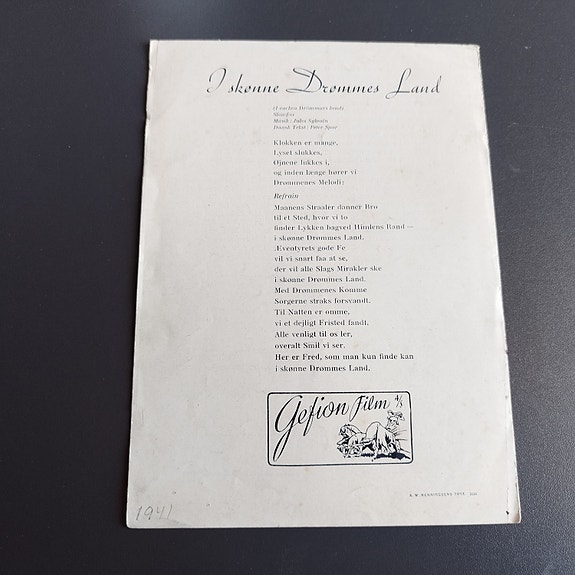 I skønne Drømmes Land
(I vackra Drömmars land)
Slow-Fox
Musik: Jules Sylvain
Dansk Tekst: Peter Spar
Klokken er mange,
Lyset slukkes,
Øjnene lukkes i,
og inden længe hører vi
Drømmenes Melodi:
Refrain
Maanens Straaler danner Bro
til et Sted, hvor vi to
finder Lykken bagved Himlens Rand —
i skønne Drømmes Land.
Æventyrets gode Fe
vil vi snart faa at se,
der vil alle Slags Mirakler ske
i skønne Drømmes Land.
Med Drømmenes Komme
Sorgerne straks forsvandt.
Til Natten er omme,
vi et dejligt Fristed fandt.
Alle venligt til os ler,
overalt Smil vi ser.
Her er Fred, som man kun finde kan
i skønne Drømmes Land.
Gefion Film A/S
1941